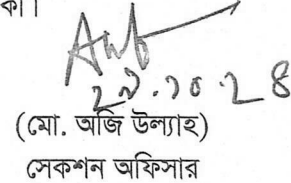 কা।
২৯.১০.২৪
(মো. অজি উল্যাহ)
সেকশন অফিসার